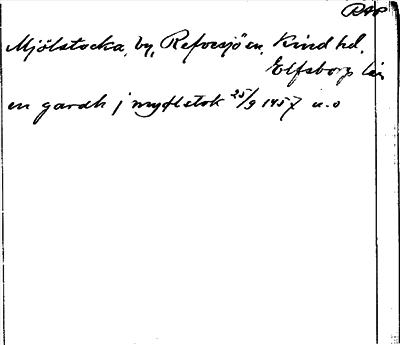 RAP
Mjölstocka, by, Refvesjö sn, Kind hd,
Elfsborgs län
en gardh j mydlstok 25/9 1457 u.o